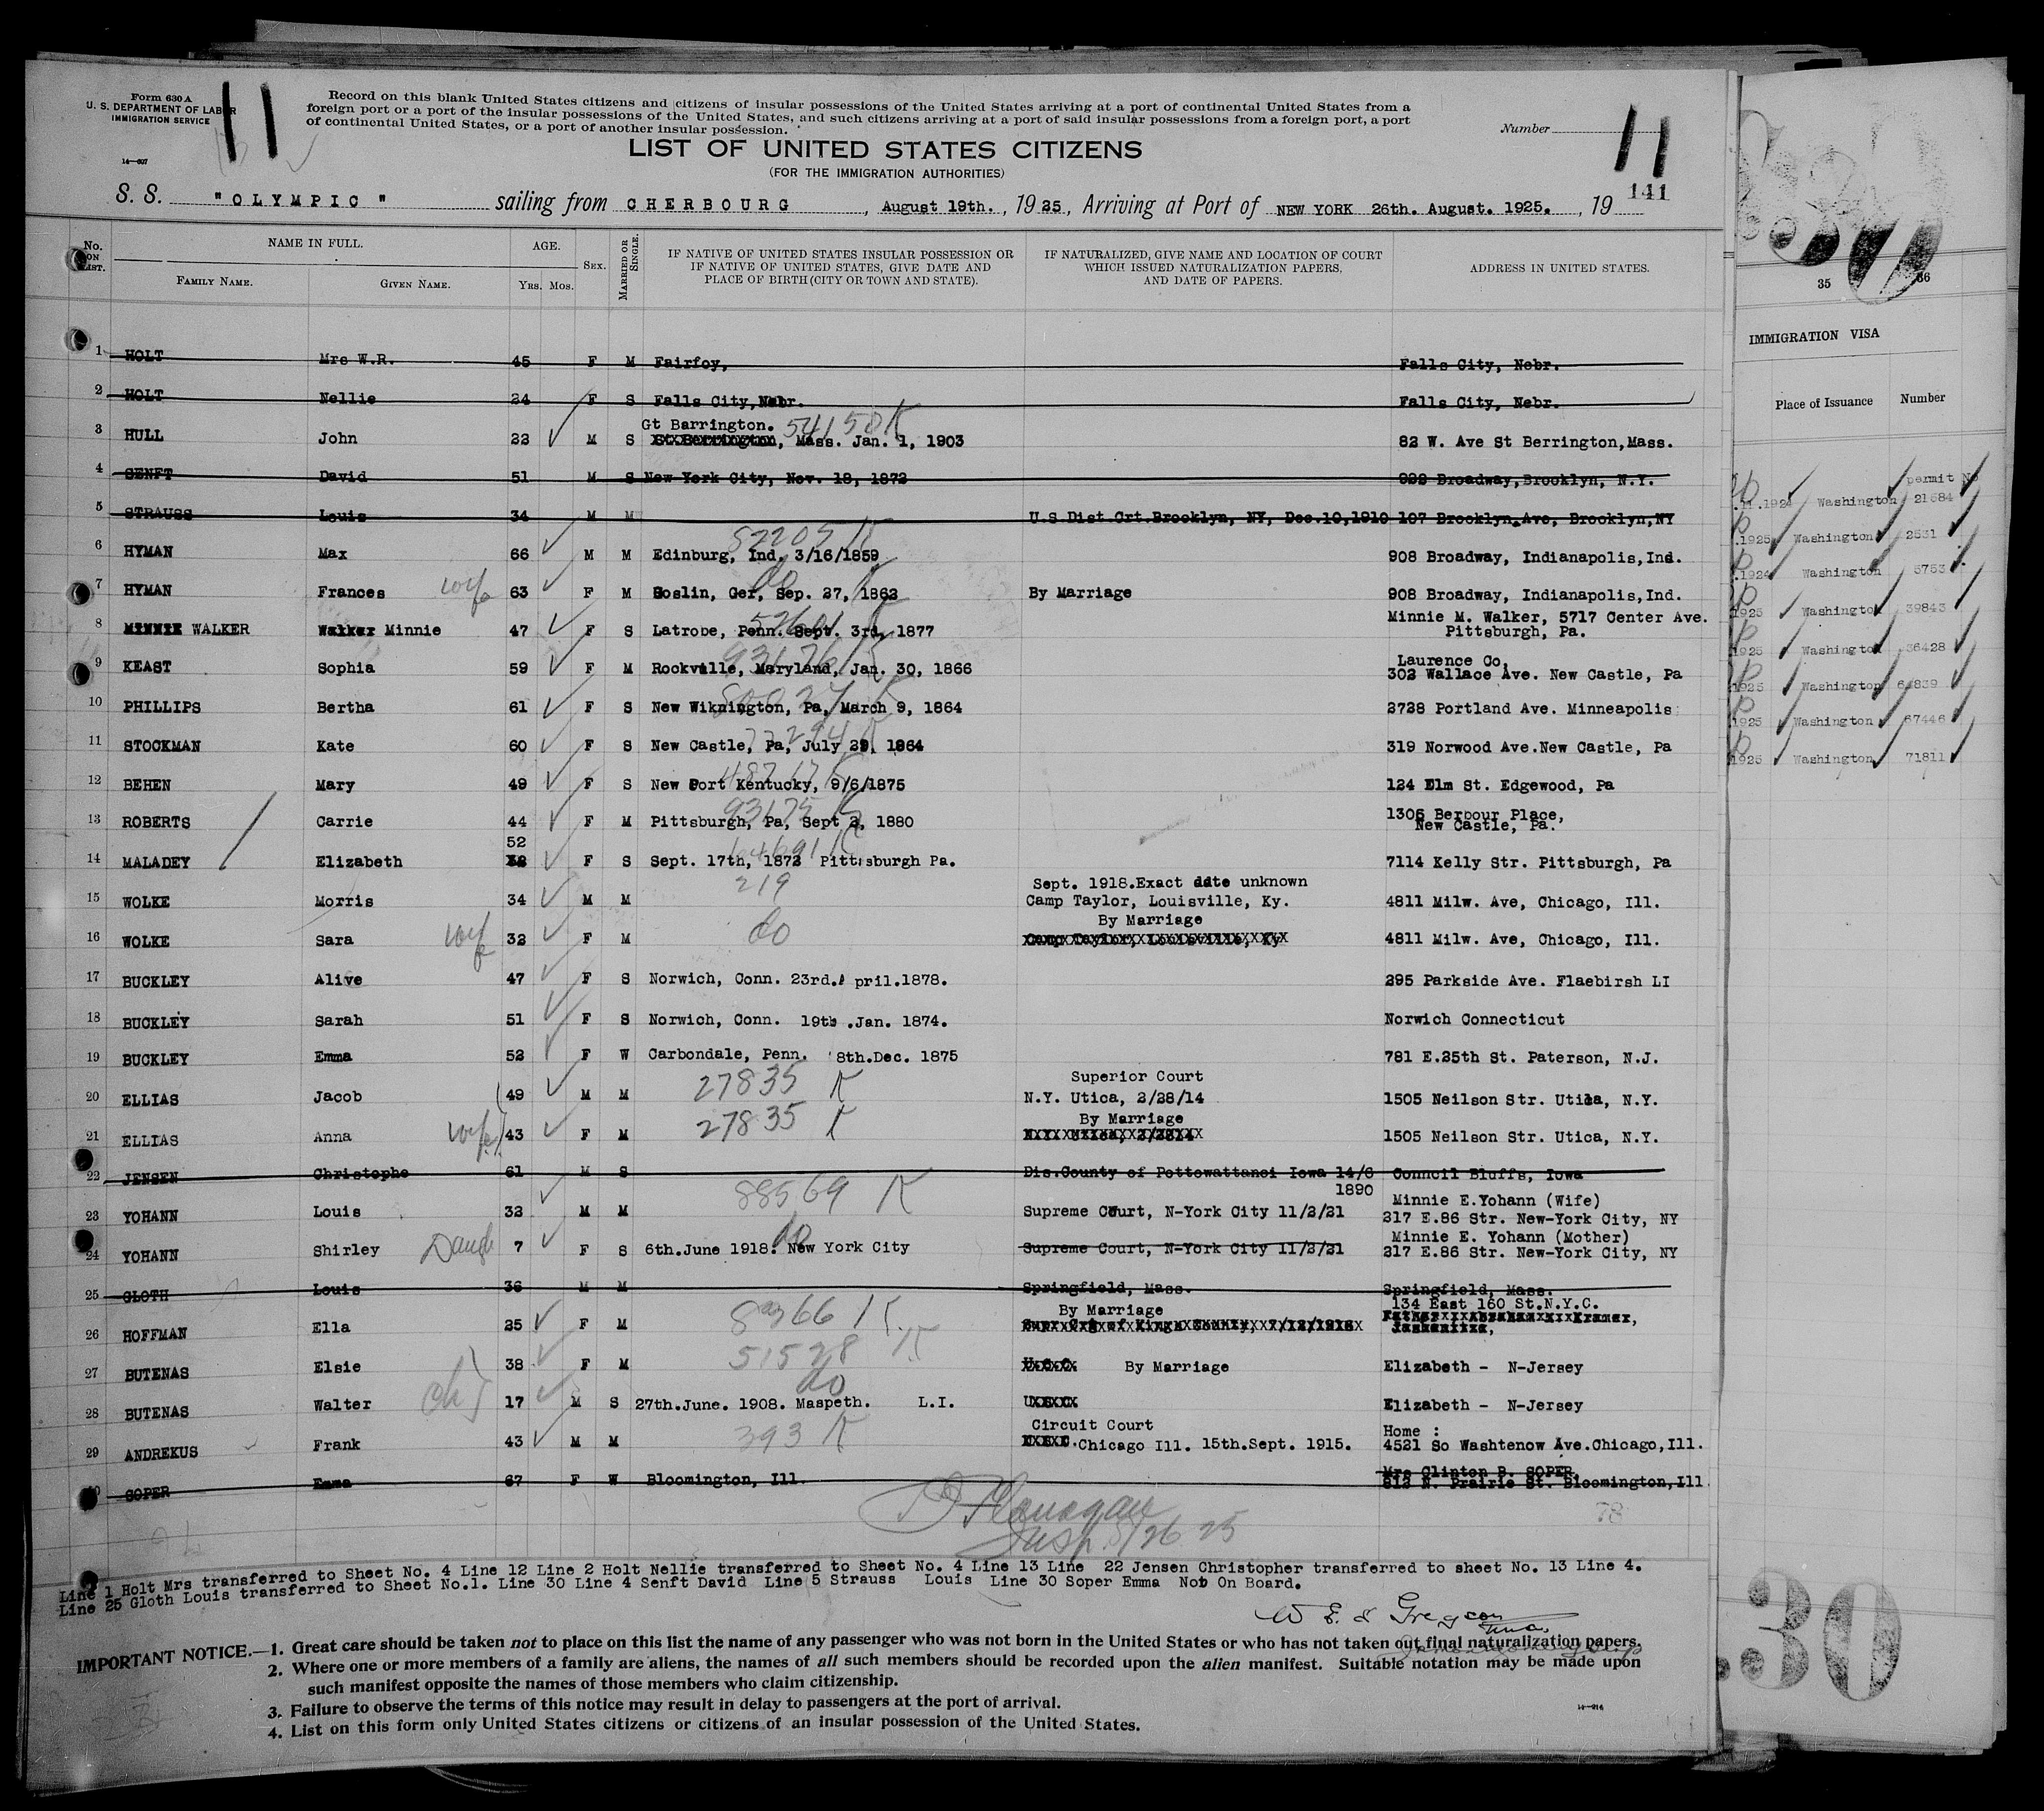 Form 630 A
U. S. DEPARTMENT OF LABOR
IMMIGRATION SERVICE
14—607
11
Record on this blank United States citizens and citizens of insular possessions of the United States arriving at a port of continental United States from a
foreign port or a port of the insular possessions of the United States, and such citizens arriving at a port of said insular possessions from a foreign port, a port
of continental United States, or a port of another insular possession.
Number
11
LIST OF UNITED STATES CITIZENS
(FOR THE IMMIGRATION AUTHORITIES)
141
S. S. "OLYMPIC" sailing from CHERBOURG, August 19th., 1925, Arriving at Port of NEW YORK 26th. August. 1925., 19
No. ON LIST. NAME IN FULL. FAMILY NAME. GIVEN NAME. AGE. Yrs. Mos. SEX. MARRIED OR SINGLE. IF NATIVE OF UNITED STATES INSULAR POSSESSION OR IF NATIVE OF UNITED STATES, GIVE DATE AND PLACE OF BIRTH (CITY OR TOWN AND STATE). IF NATURALIZED, GIVE NAME AND LOCATION OF COURT WHICH ISSUED NATURALIZATION PAPERS, AND DATE OF PAPERS. ADDRESS IN UNITED STATES.
1 HOLT Mrs W.R. 45 F M Fairfoy, Falls City, Nebr.
2 HOLT Nellie 24 F S Falls City, Nebr. Falls City, Nebr.
Gt Barrington. 54150 K
3 HULL John 22 M S St Berrington, Mass. Jan. 1, 1903 82 W. Ave St Berrington, Mass.
4 SENFT David 51 M S New York City, Nov. 18, 1872 922 Broadway, Brooklyn, N.Y.
5 STRAUSS Louis 34 M M U.S Dist.Crt.Brooklyn, NY, Dec.10,1910 107 Brooklyn Ave, Brooklyn, NY
82205 K
6 HYMAN Max 66 M M Edinburg, Ind. 3/16/1859 908 Broadway, Indianapolis, Ind.
do
7 HYMAN Frances wife 63 F M Goslin, Ger, Sep. 27, 1862 By Marriage 908 Broadway, Indianapolis, Ind.
Minnie M. Walker, 5717 Center Ave.
8 MINNIE WALKER Walker Minnie 47 F S Latrobe, Penn. Sept. 3rd, 1877 Pittsburgh, Pa.
93176 K
Laurence Co,
9 KEAST Sophia 59 F M Rockville, Maryland, Jan. 30, 1866 302 Wallace Ave. New Castle, Pa
10 PHILLIPS Bertha 61 F S New Wiknington, Pa, March 9, 1864 2728 Portland Ave. Minneapolis
11 STOCKMAN Kate 60 F S New Castle, Pa, July 29, 1864 319 Norwood Ave.New Castle, Pa
12 BEHEN Mary 49 F S New Port Kentucky, 9/6/1875 124 Elm St. Edgewood, Pa
93175 K
13 ROBERTS Carrie 44 F M Pittsburgh, Pa, Sept 2, 1880 1306 Berbour Place,
New Castle, Pa.
52
14 MALADEY Elizabeth F S Sept. 17th, 1873 Pittsburgh Pa. 7114 Kelly Str. Pittsburgh, Pa
219 Sept. 1918.Exact date unknown
15 WOLKE Morris 34 M M Camp Taylor, Louisville, Ky. 4811 Milw. Ave, Chicago, Ill.
do By Marriage
16 WOLKE Sara wife 32 F M Camp Taylor, Louisville, Ky 4811 Milw. Ave, Chicago, Ill.
17 BUCKLEY Alive 47 F S Norwich, Conn. 23rd. April.1878. 295 Parkside Ave. Flaebirsh LI
18 BUCKLEY Sarah 51 F S Norwich, Conn. 19th .Jan. 1874. Norwich Connecticut
19 BUCKLEY Emma 52 F W Carbondale, Penn. 8th.Dec. 1875 781 E.25th St. Paterson, N.J.
27835 K Superior Court
20 ELLIAS Jacob 49 M M N.Y. Utica, 2/28/14 1505 Neilson Str. Utica, N.Y.
27835 K By Marriage
21 ELLIAS Anna wife 43 F M N.Y. Utica, 2/2814 1505 Neilson Str. Utica, N.Y.
22 JENSEN Christophe 61 M S Dis.County of Pottowattanoi Iowa 14/6 Council Bluffs, Iowa
1890
88569 K Minnie E.Yohann (Wife)
23 YOHANN Louis 32 M M Supreme Court, N-York City 11/2/21 217 E.86 Str. New-York City, NY
do Minnie E. Yohann (Mother)
24 YOHANN Shirley Daugh 7 F S 6th.June 1918. New York City Supreme Court, N-York City 11/2/21 217 E.86 Str. New-York City, NY
25 GLOTH Louis 36 M M Springfield, Mass. Springfield, Mass.
By Marriage 134 East 160 St.N.Y.C.
26 HOFFMAN Ella 25 F M Kings County, 7/12/1918 Father Abraham Kramer,
51528 K
27 BUTENAS Elsie 38 F M By Marriage Elizabeth - N-Jersey
do
28 BUTENAS Walter ch 17 M S 27th.June. 1908. Maspeth. L.I. Elizabeth - N-Jersey
393 K Circuit Court Home :
29 ANDREKUS Frank 43 M M Chicago Ill. 15th.Sept. 1915. 4521 So Washtenow Ave.Chicago, Ill.
Mrs Clinton P. SOPER,
30 SOPER Emma 67 F W Bloomington, Ill. 812 N. Prairie St. Bloomington, Ill
Flanagan
Insp. 8/26 25
78
Line 1 Holt Mrs transferred to Sheet No. 4 Line 12 Line 2 Holt Nellie transferred to Sheet No. 4 Line 13 Line 22 Jensen Christopher transferred to sheet No. 13 Line 4.
Line 25 Gloth Louis transferred to Sheet No.1. Line 30 Line 4 Senft David Line 5 Strauss Louis Line 30 Soper Emma Not On Board.
IMPORTANT NOTICE.—1. Great care should be taken not to place on this list the name of any passenger who was not born in the United States or who has not taken out final naturalization papers.
2. Where one or more members of a family are aliens, the names of all such members should be recorded upon the alien manifest. Suitable notation may be made upon
such manifest opposite the names of those members who claim citizenship.
3. Failure to observe the terms of this notice may result in delay to passengers at the port of arrival.
4. List on this form only United States citizens or citizens of an insular possession of the United States.
35 36
IMMIGRATION VISA
Place of Issuance Number
permit No
1924 Washington 21684
1925 Washington 2531
1924 Washington 5753
1925 Washington 39843
1925 Washington 36428
1925 Washington 64839
1925 Washington 67446
1925 Washington 71811
30